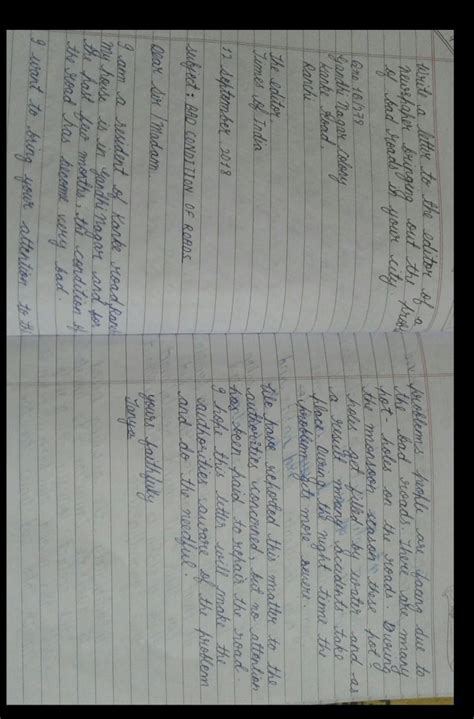 Write a letter to the editor of a
newspaper bringing out the prob
of bad roads in your city.
Gandhi Nagar Colony
Kanke Road
Ranchi
The editor
Times of India
17 September 2018
Subject: BAD CONDITION OF ROADS
Dear Sir / Madam
I am a resident of Kanke road
my house is in Gandhi Nagar and for
the past few months, the condition of
the road has become very bad
I want to bring your attention to the
problems people are facing due to
the bad roads. There are many
pot-holes on the roads. During
the monsoon season these pot
holes get filled by water and as
a result many accidents take
place. During the night time the
problem gets more severe.
We have reported this matter to the
authorities concerned, but no attention
has been paid to repair the road.
I hope this letter will make the
authorities aware of the problem
and do the needful.
yours faithfully
Tanya